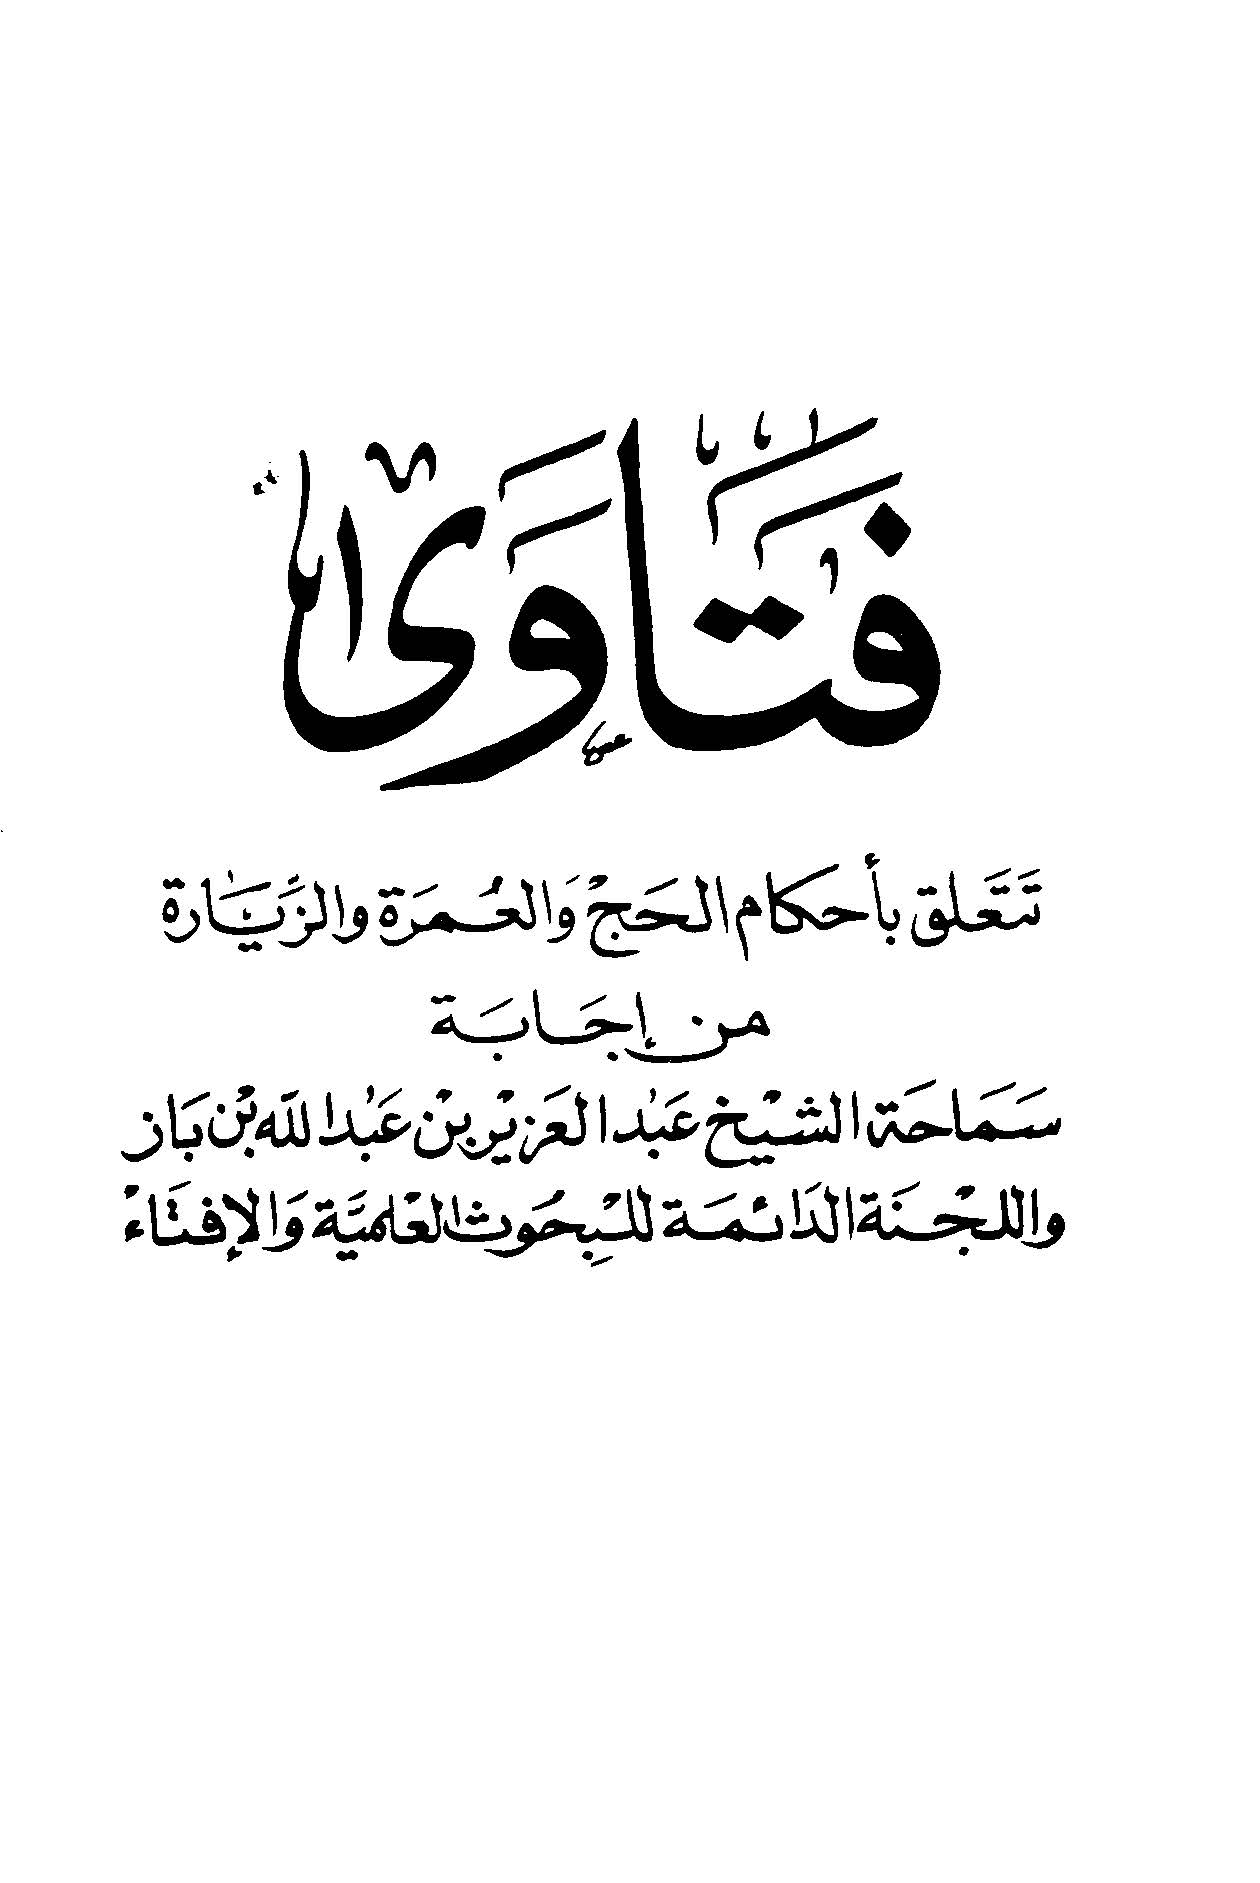 فَتَاوَىٰ
تَتَعَلق بأحكام الحَجّ وَالعُمرَة والزِّيَارة
من إجَابَة
سَمَاحَة الشيْخ عَبْد العَزيْز بن عَبْد الله بْن بَاز
واللجْنَة الدَائمَة للبِحُوث العْلميَّة وَالإفتَاءْ